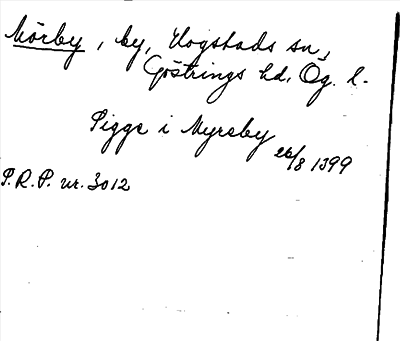 Mörby, by, Hogstads sn,
Göstrings hd, Ög. l.
Sigge i Myreby 26/8 1399
P.R.P. nr. 3012